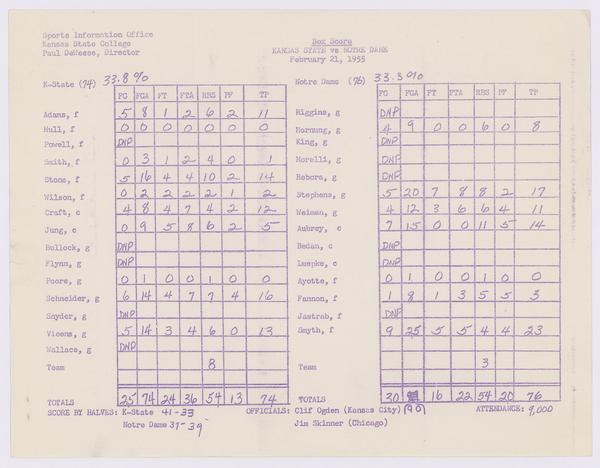 Sports Information Office
Kansas State College
Paul DeWeese, Director
Box Score
KANSAS STATE vs NOTRE DAME
February 21, 1955
K-State (74) 33.8%
FG FGA FT FTA RBS PF TP
Adams, f 5 8 1 2 6 2 11
Hull, f 0 0 0 0 0 0 0
Powell, f DNP
Smith, f 0 3 1 2 4 0 1
Stone, f 5 16 4 4 10 2 14
Wilson, f 0 2 2 2 2 1 2
Craft, c 4 8 4 7 4 2 12
Jung, c 0 9 5 8 6 2 5
Bullock, g DNP
Flynn, g DNP
Poore, g 0 1 0 0 1 0 0
Schneider, g 6 14 4 7 7 4 16
Snyder, g DNP
Vicens, g 5 14 3 4 6 0 13
Wallace, g DNP
Team 8
TOTALS 25 74 24 36 54 13 74
Notre Dame (76) 33.3%
FG FGA FT FTA RBS PF TP
Higgins, g DNP
Hornung, g 4 9 0 0 6 0 8
King, g DNP
Morelli, g DNP
Rebora, g DNP
Stephens, g 5 20 7 8 8 2 17
Weiman, g 4 12 3 6 6 4 11
Aubrey, c 7 15 0 0 11 5 14
Bedan, c DNP
Luepke, c DNP
Ayotte, f 0 1 0 0 1 0 0
Fannon, f 1 8 1 3 5 5 3
Jastrab, f DNP
Smyth, f 9 25 5 5 4 4 23
Team 3
TOTALS 30 16 22 54 20 76
(90)
SCORE BY HALVES: K-State 41-33
Notre Dame 37-39
OFFICIALS: Clif Ogden (Kansas City)
Jim Skinner (Chicago)
ATTENDANCE: 9,000